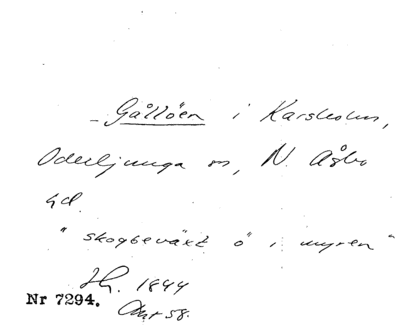 - Gållöen i Karsholm,
Oderljunga sn, N. Åsbo
hd.
" skogbeväxt ö i myren "
1844
Nr 7294.
58.